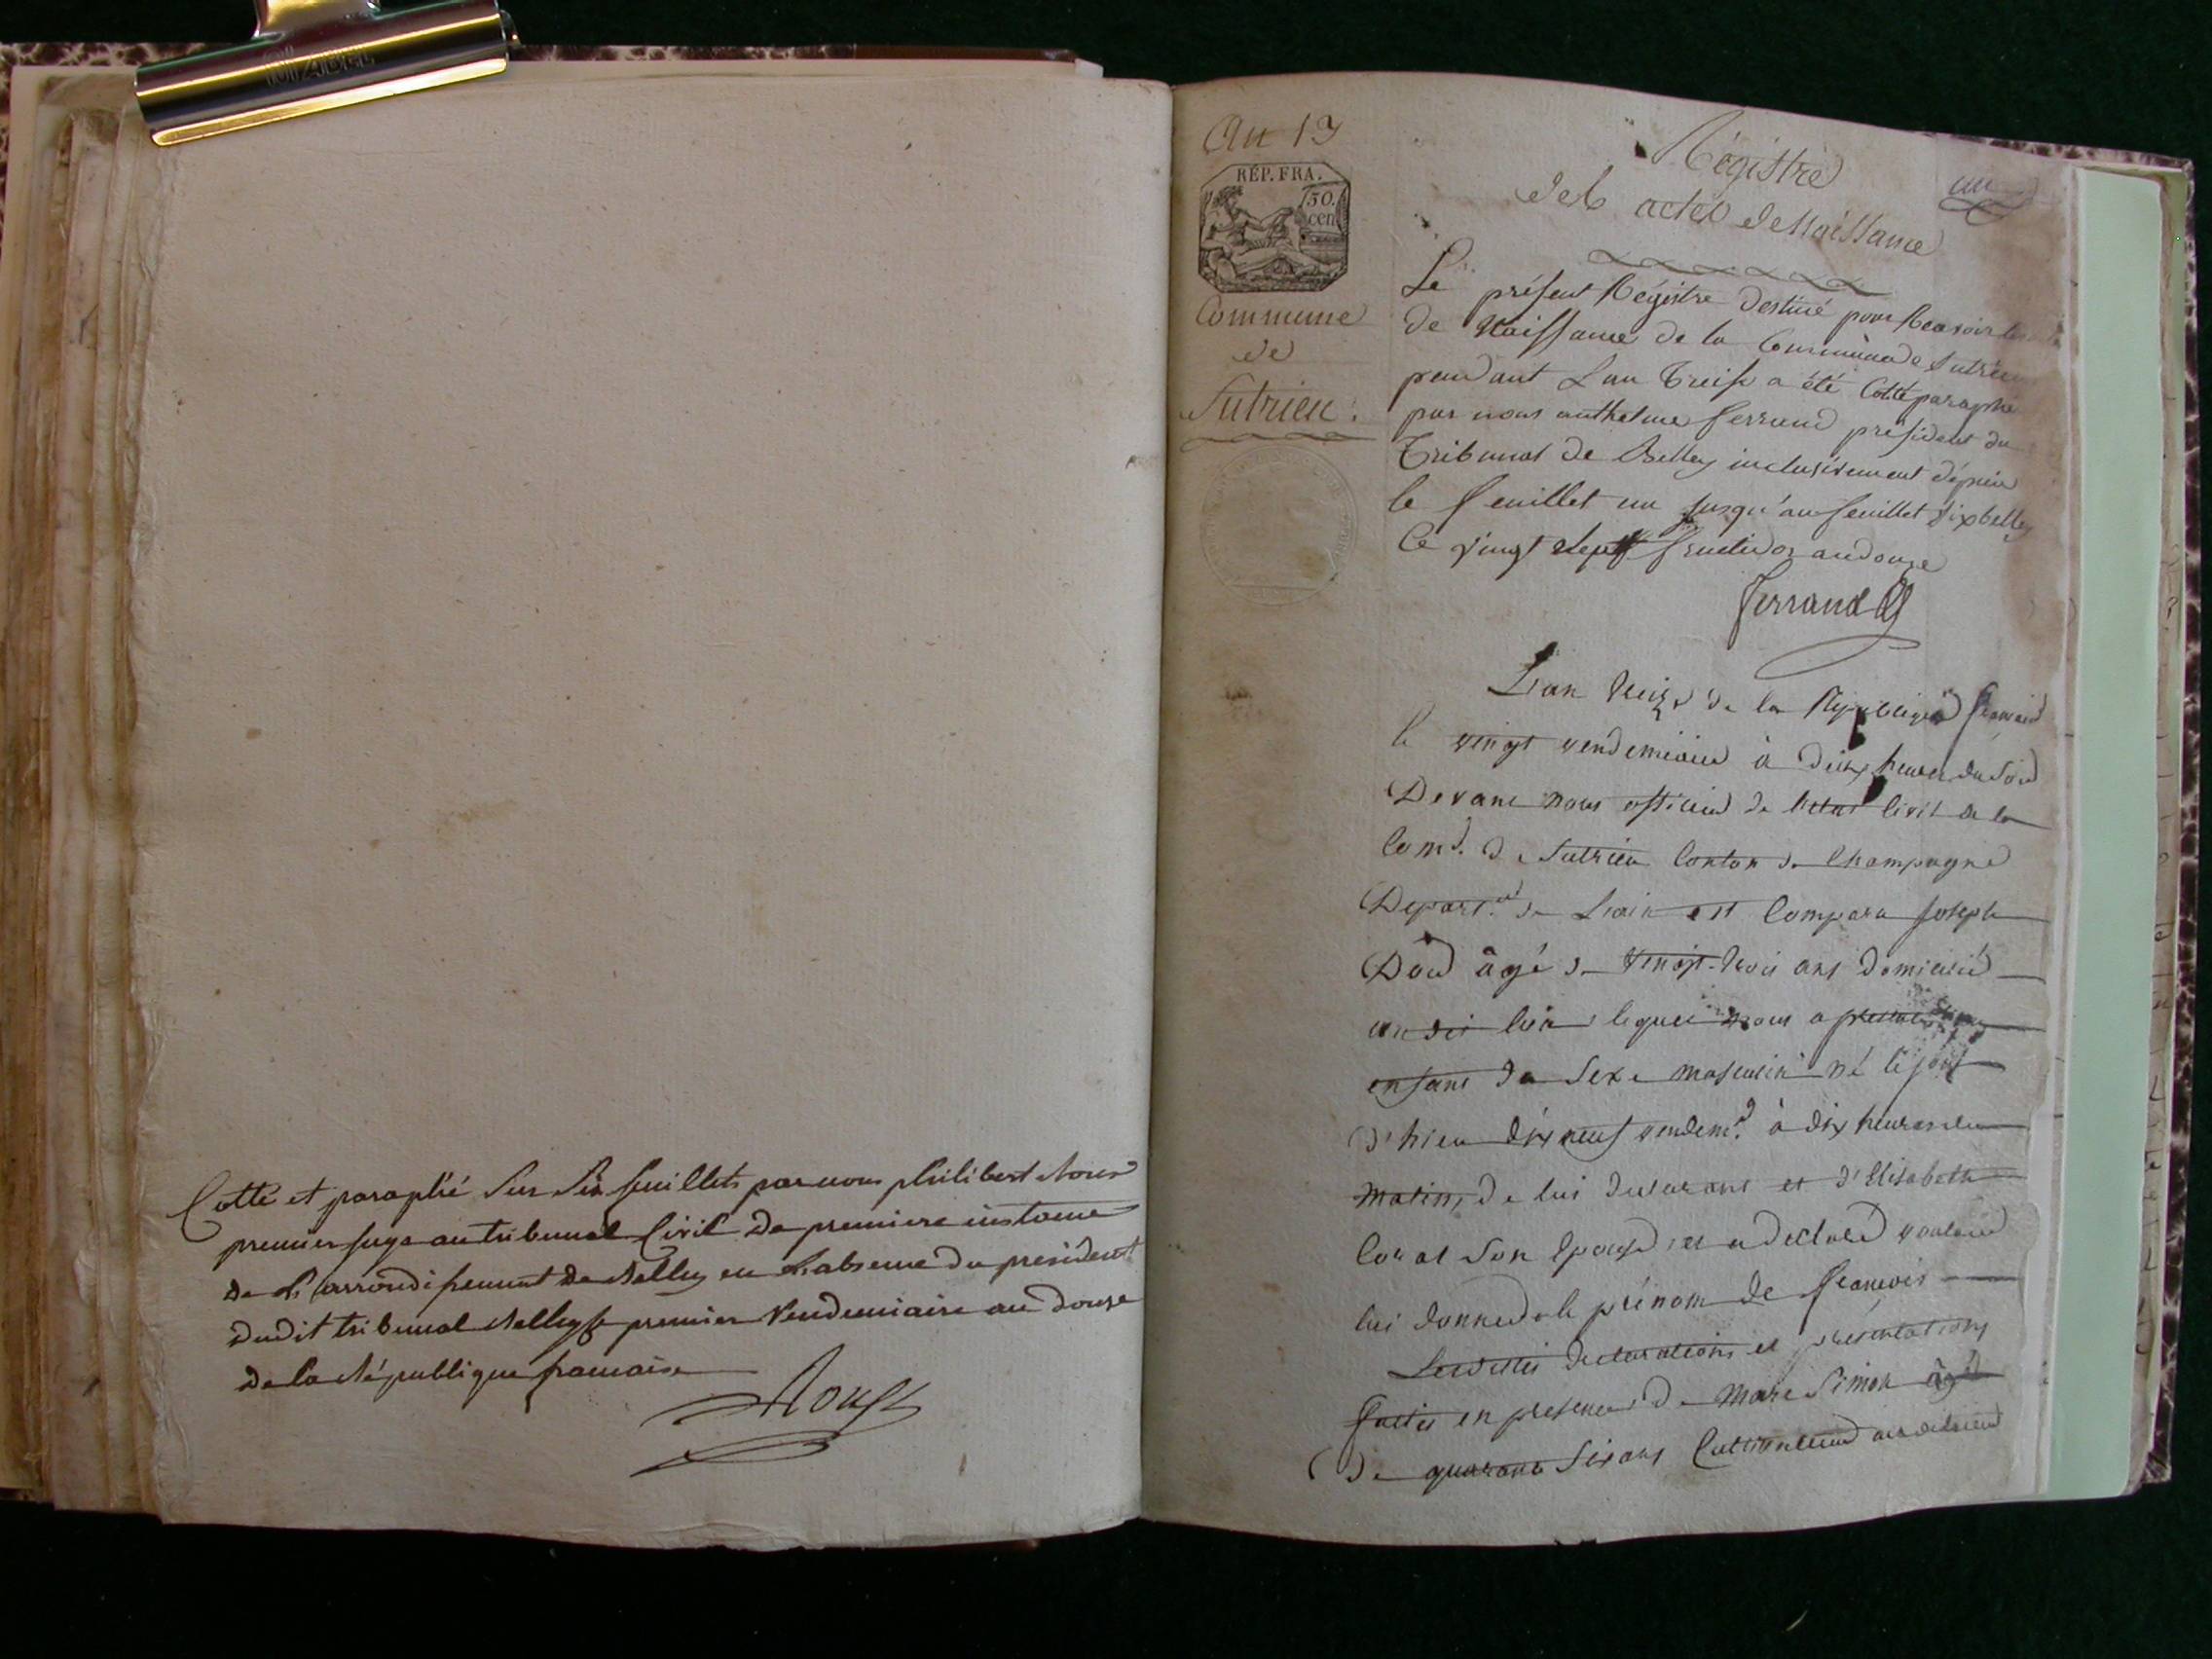 Cotté et paraphé Sur Six feuillets par nous philibert
premier juge au tribunal Civil De premiere instance
de L'arrondissement de Belley en L'absence du président
dudit tribunal Belley le premier Vendemiaire an douze
de la République francaise
An 13
RÉP. FRA.
50. cen
Commune
de
Sutrieu.
un
Régistre
des actes de Naissance
Le présent Régistre destiné pour Recevoir les
de Naissance de la Commune de Sutrieu
pendant L'an Treise a été Cotté paraphé
par nous anthelme ferrand président du
Tribunal de Belley inclusivement dépuis
le feuillet un jusqu'au feuillet six belley
Ce vingt sept fructidor an douze
Ferrand
L'an treize de la République francais
le vingt vendemiaire à deux heures du soir
Devant nous officier de l'etat Civil de la
Com.e de Sutrieu Canton de Champagne
Depart.nt de L'ain est Comparu Joseph
âgé de vingt-trois ans domicilié
lieu lequel nous a presenté
enfant du Sexe masculin né le jour
d'hier dix neuf vendem.e à dix heures du
matin, de lui declarant et d'Elisabeth
son Epouse, et a declaré vouloir
lui donner le prénom de francois
Lesdites declarations et presentations
faites en presence de Marc Simon âgé
De quarante Six ans Cultivateur